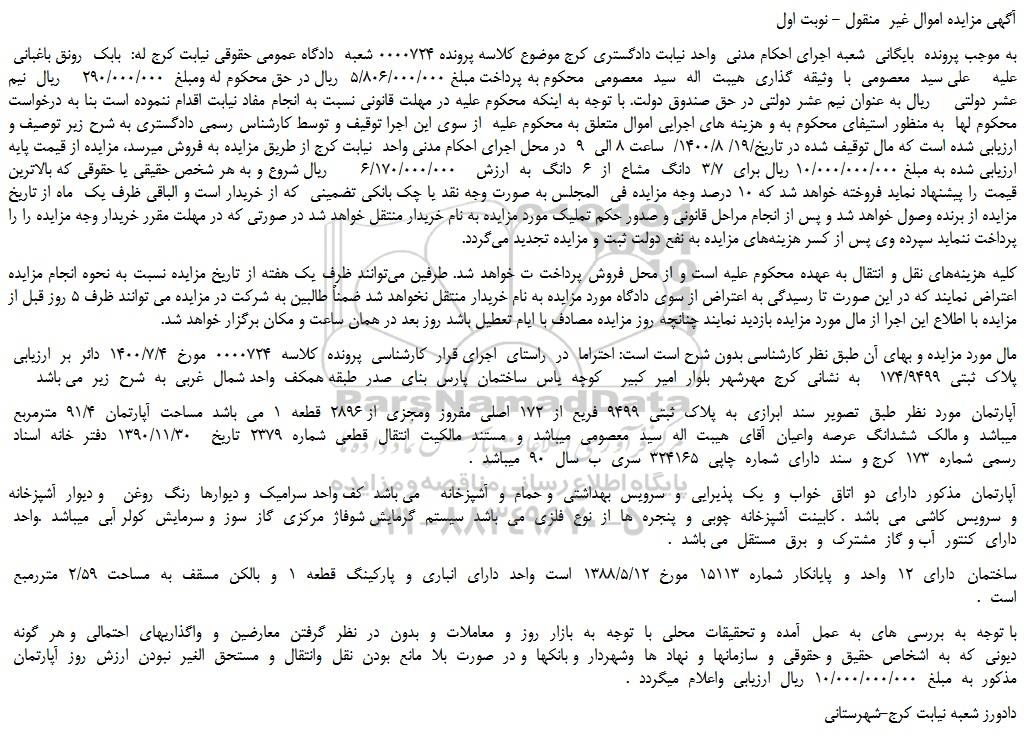 آگهی مزایده اموال غیر منقول - نوبت اول
به موجب پرونده بایگانی شعبه اجرای احکام مدنی واحد نیابت دادگستری کرج موضوع کلاسه پرونده ۰۰۰۰۷۲۴ شعبه دادگاه عمومی حقوقی نیابت کرج له: بابک رونق باغبانی
علیه علی سید معصومی با وثیقه گذاری هیبت اله سید معصومی محکوم به پرداخت مبلغ ۵/۸۰۶/۰۰۰/۰۰۰ ریال در حق محکوم له ومبلغ ۲۹۰/۰۰۰/۰۰۰ ریال نیم
عشر دولتی ریال به عنوان نیم عشر دولتی در حق صندوق دولت. با توجه به اینکه محکوم علیه در مهلت قانونی نسبت به انجام مفاد نیابت اقدام ننموده است بنا به درخواست
محکوم لها به منظور استیفای محکوم به و هزینه های اجرایی اموال متعلق به محکوم علیه از سوی این اجرا توقیف و توسط کارشناس رسمی دادگستری به شرح زیر توصیف و
ارزیابی شده است که مال توقیف شده در تاریخ/۱۹/ ۱۴۰۰/۸/ ساعت ۸ الی ۹ در محل اجرای احکام مدنی واحد نیابت کرج از طریق مزایده به فروش میرسد، مزایده از قیمت پایه
ارزیابی شده به مبلغ ۱۰/۰۰۰/۰۰۰/۰۰۰ ریال برای ۳/۷ دانگ مشاع از ۶ دانگ به ارزش ۶/۱۷۰/۰۰۰/۰۰۰ ریال شروع و به هر شخص حقیقی یا حقوقی که بالاترین
قیمت را پیشنهاد نماید فروخته خواهد شد که ۱۰ درصد وجه مزایده فی المجلس به صورت وجه نقد یا چک بانکی تضمینی که از خریدار است و الباقی ظرف یک ماه از تاریخ
مزایده از برنده وصول خواهد شد و پس از انجام مراحل قانونی و صدور حکم تملیک مورد مزایده به نام خریدار منتقل خواهد شد در صورتی که در مهلت مقرر خریدار وجه مزایده را را
پرداخت ننماید سپرده وی پس از کسر هزینه‌های مزایده به نفع دولت ثبت و مزایده تجدید می‌گردد.
کلیه هزینه‌های نقل و انتقال به عهده محکوم علیه است و از محل فروش پرداخت ت خواهد شد. طرفین می‌توانند ظرف یک هفته از تاریخ مزایده نسبت به نحوه انجام مزایده
اعتراض نمایند که در این صورت تا رسیدگی به اعتراض از سوی دادگاه مورد مزایده به نام خریدار منتقل نخواهد شد ضمناً طالبین به شرکت در مزایده می توانند ظرف ۵ روز قبل از
مزایده با اطلاع این اجرا از مال مورد مزایده بازدید نمایند چنانچه روز مزایده مصادف با ایام تعطیل باشد روز بعد در همان ساعت و مکان برگزار خواهد شد.
مال مورد مزایده و بهای آن طبق نظر کارشناسی بدون شرح است است: احتراما در راستای اجرای قرار کارشناسی پرونده کلاسه ۰۰۰۰۷۲۴ مورخ ۱۴۰۰/۷/۴ دائر بر ارزیابی
پلاک ثبتی ۱۷۴/۹۴۹۹ به نشانی کرج مهرشهر بلوار امیر کبیر کوچه یاس ساختمان پارس بنای صدر طبقه همکف واحد شمال غربی به شرح زیر می باشد
آپارتمان مورد نظر طبق تصویر سند ابرازی به پلاک ثبتی ۹۴۹۹ فریع از ۱۷۲ اصلی مفروز ومجزی از ۲۸۹۶ قطعه ۱ می باشد مساحت آپارتمان ۹۱/۴ مترمربع
میباشد و مالک ششدانگ عرصه واعیان آقای هیبت اله سید معصومی میباشد و مستند مالکیت انتقال قطعی شماره ۲۳۷۹ تاریخ ۱۳۹۰/۱۱/۳۰ دفتر خانه اسناد
رسمی شماره ۱۷۳ کرج و سند دارای شماره چاپی ۳۲۴۱۶۵ سری ب سال ۹۰ میباشد .
آپارتمان مذکور دارای دو اتاق خواب و یک پذیرایی و سرویس بهداشتی و حمام و آشپزخانه می باشد کف واحد سرامیک و دیوارها رنگ روغن و دیوار آشپزخانه
و سرویس کاشی می باشد . کابینت آشپزخانه چوبی و پنجره ها از نوع فلزی می باشد سیستم گرمایش شوفاژ مرکزی گاز سوز و سرمایش کولر آبی میباشد .واحد
دارای کنتور آب و گاز مشترک و برق مستقل می باشد .
ساختمان دارای ۱۲ واحد و پایانکار شماره ۱۵۱۱۳ مورخ ۱۳۸۸/۵/۱۲ است واحد دارای انباری و پارکینگ قطعه ۱ و بالکن مسقف به مساحت ۲/۵۹ متررمبع
است .
با توجه به بررسی های به عمل آمده و تحقیقات محلی با توجه به بازار روز و معاملات و بدون در نظر گرفتن معارضین و واگذاریهای احتمالی و هر گونه
دیونی که به اشخاص حقیق و حقوقی و سازمانها و نهاد ها وشهردار و بانکها و در صورت بلا مانع بودن نقل وانتقال و مستحق الغیر نبودن ارزش روز آپارتمان
مذکور به مبلغ ۱۰/۰۰۰/۰۰۰/۰۰۰ ریال ارزیابی واعلام میگردد .
دادورز شعبه نیابت کرج-شهرستانی
ParsNamadData
پایگاه اطلاع رسانی مناقصه و مزایده
۰۲۱-۸۸۳۴۹۶۷۰-۵